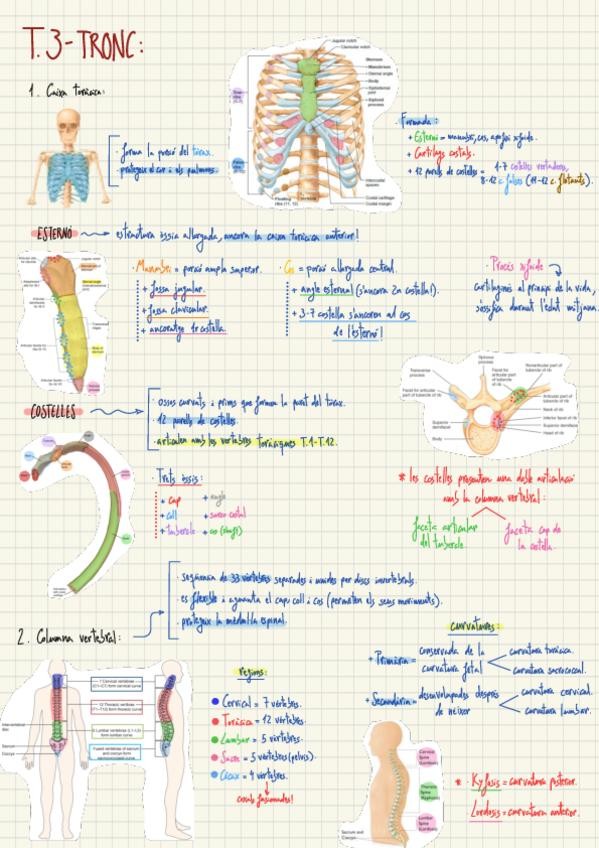 T.3-TRONC:
1. Caixa toràcica:
forma la porció del tòrax.
protegeix el cor i els pulmons.
Jugular notch
Clavicular notch
Manubrium
Sternal angle
Body
Xiphoid process
Intercostal spaces
Costal cartilage
Costal margin
Floating ribs (11, 12)
Formada:
+ Esternó = manubri, cos, apòfisi xifoide.
+ Cartílags costals.
+ 12 parells de costelles = 1-7 costelles verdaderes,
8-12 c. falses (11-12 c. flotants).
ESTERNÓ
estructura òssia allargada, ancora la caixa toràcica anterior!
· Manubri = porció ampla superior.
+ fossa jugular.
+ fossa clavicular.
+ ancoratge 1r costella.
· Cos = porció allargada central.
+ angle esternal (s'ancora 2a costella).
+ 3-7 costella s'ancoren al cos
de l'esternó!
· Procés xifoide
cartilaginós al principi de la vida,
s'ossifica durant l'edat mitjana.
COSTELLES
· ossos curvats i prims que formen la paret del tòrax.
· 12 parells de costelles.
· articulen amb les vèrtebres toràciques T.1-T.12.
Spinous process
Transverse process
Facet for articular part of tubercle of rib
Nonarticular part of tubercle of rib
Articular part of tubercle of rib
Neck of rib
Inferior facet of rib
Superior facet of rib
Head of rib
Superior demifacet
Body
· Trets òssis:
+ cap
+ coll
+ tubercle
+ angle
+ surco costal
+ cos (shaft)
* les costelles presenten una doble articulació
amb la columna vertebral:
faceta articular
del tubercle.
faceta cap de
la costella.
2. Columna vertebral:
· seqüència de 33 vèrtebres separades i unides per discs invertebrals.
· es flexible i aguanta el cap, coll i cos (permeten els seus moviments).
· protegeix la medul·la espinal.
7 Cervical vertebrae (C1–C7) form cervical curve
12 Thoracic vertebrae (T1–T12) form thoracic curve
5 Lumbar vertebrae (L1–L5) form lumbar curve
Fused vertebrae of sacrum and coccyx form sacrococcygeal curve
Intervertebral disc
Sacrum
Coccyx
regions:
Cervical = 7 vèrtebres.
Toràcica = 12 vèrtebres.
Lumbar = 5 vèrtebres.
Sacre = 5 vèrtebres (pelvis).
Còccix = 4 vèrtebres.
curvatures:
+ Primària = conservada de la
curvatura fetal
curvatura toràcica.
curvatura sacrococcal.
+ Secundària = desenvolupades després
de néixer
curvatura cervical.
curvatura lumbar.
Cervical Spine (Lordosis)
Thoracic Spine (Kyphosis)
Lumbar Spine (Lordosis)
Sacrum and Coccyx
* Kyfosis = curvatura posterior.
Lordosis = curvatura anterior.